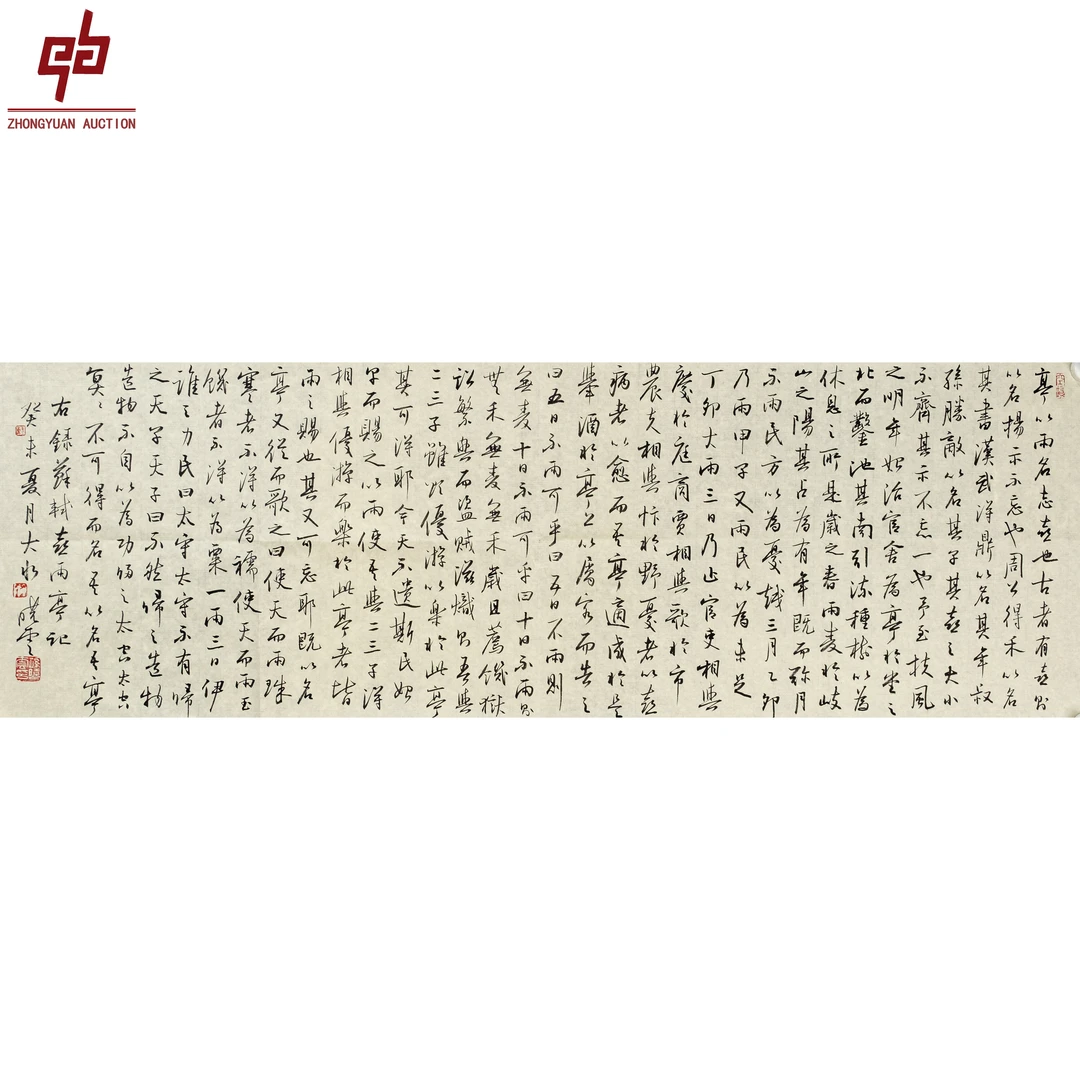 ZHONGYUAN AUCTION
亭以雨名志喜也古者有喜則
以名揚示不忘也周公得禾以名
其書漢武得鼎以名其年叔
孫勝敵以名其子其喜之大小
不齊其示不忘一也予至扶風
之明年始治官舍為亭於堂之
北而鑿池其南引流種樹以為
休息之所是歲之春雨麦於岐
山之陽其占為有年既而弥月
不雨民方以為憂越三月乙卯
乃雨甲子又雨民以為未足
丁卯大雨三日乃止官吏相與
慶於庭商賈相與歌於市
農夫相與忭於野憂者以喜
病者以愈而吾亭適成於是
舉酒於亭上以屬客而告之
曰五日不雨可乎曰五日不雨則
無麦十日不雨可乎曰十日不雨則
無禾無麦無禾歲且薦饑獄
訟繁興而盜賊滋熾則吾與
二三子雖欲優游以樂於此亭
其可得耶今天不遺斯民始
旱而賜之以雨使吾與二三子得
相與優游而樂於此亭者皆
雨之賜也其又可忘耶既以名
亭又從而歌之曰使天而雨珠
寒者不得以為襦使天而雨玉
饑者不得以為粟一雨三日伊
誰之力民曰太守太守不有歸
之天子天子曰不然歸之造物
造物不自以為功歸之太空太空
冥〻不可得而名吾以名吾亭
右錄蘇軾喜雨亭記
癸未夏月大水 曉雲